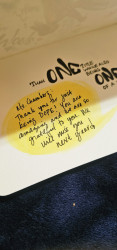 THIS ONE
ONE
OF A
Ms Chambers,
Thank you for just
being DOPE! You are
amazing and we are so
grateful to you. We
will miss you
next year!